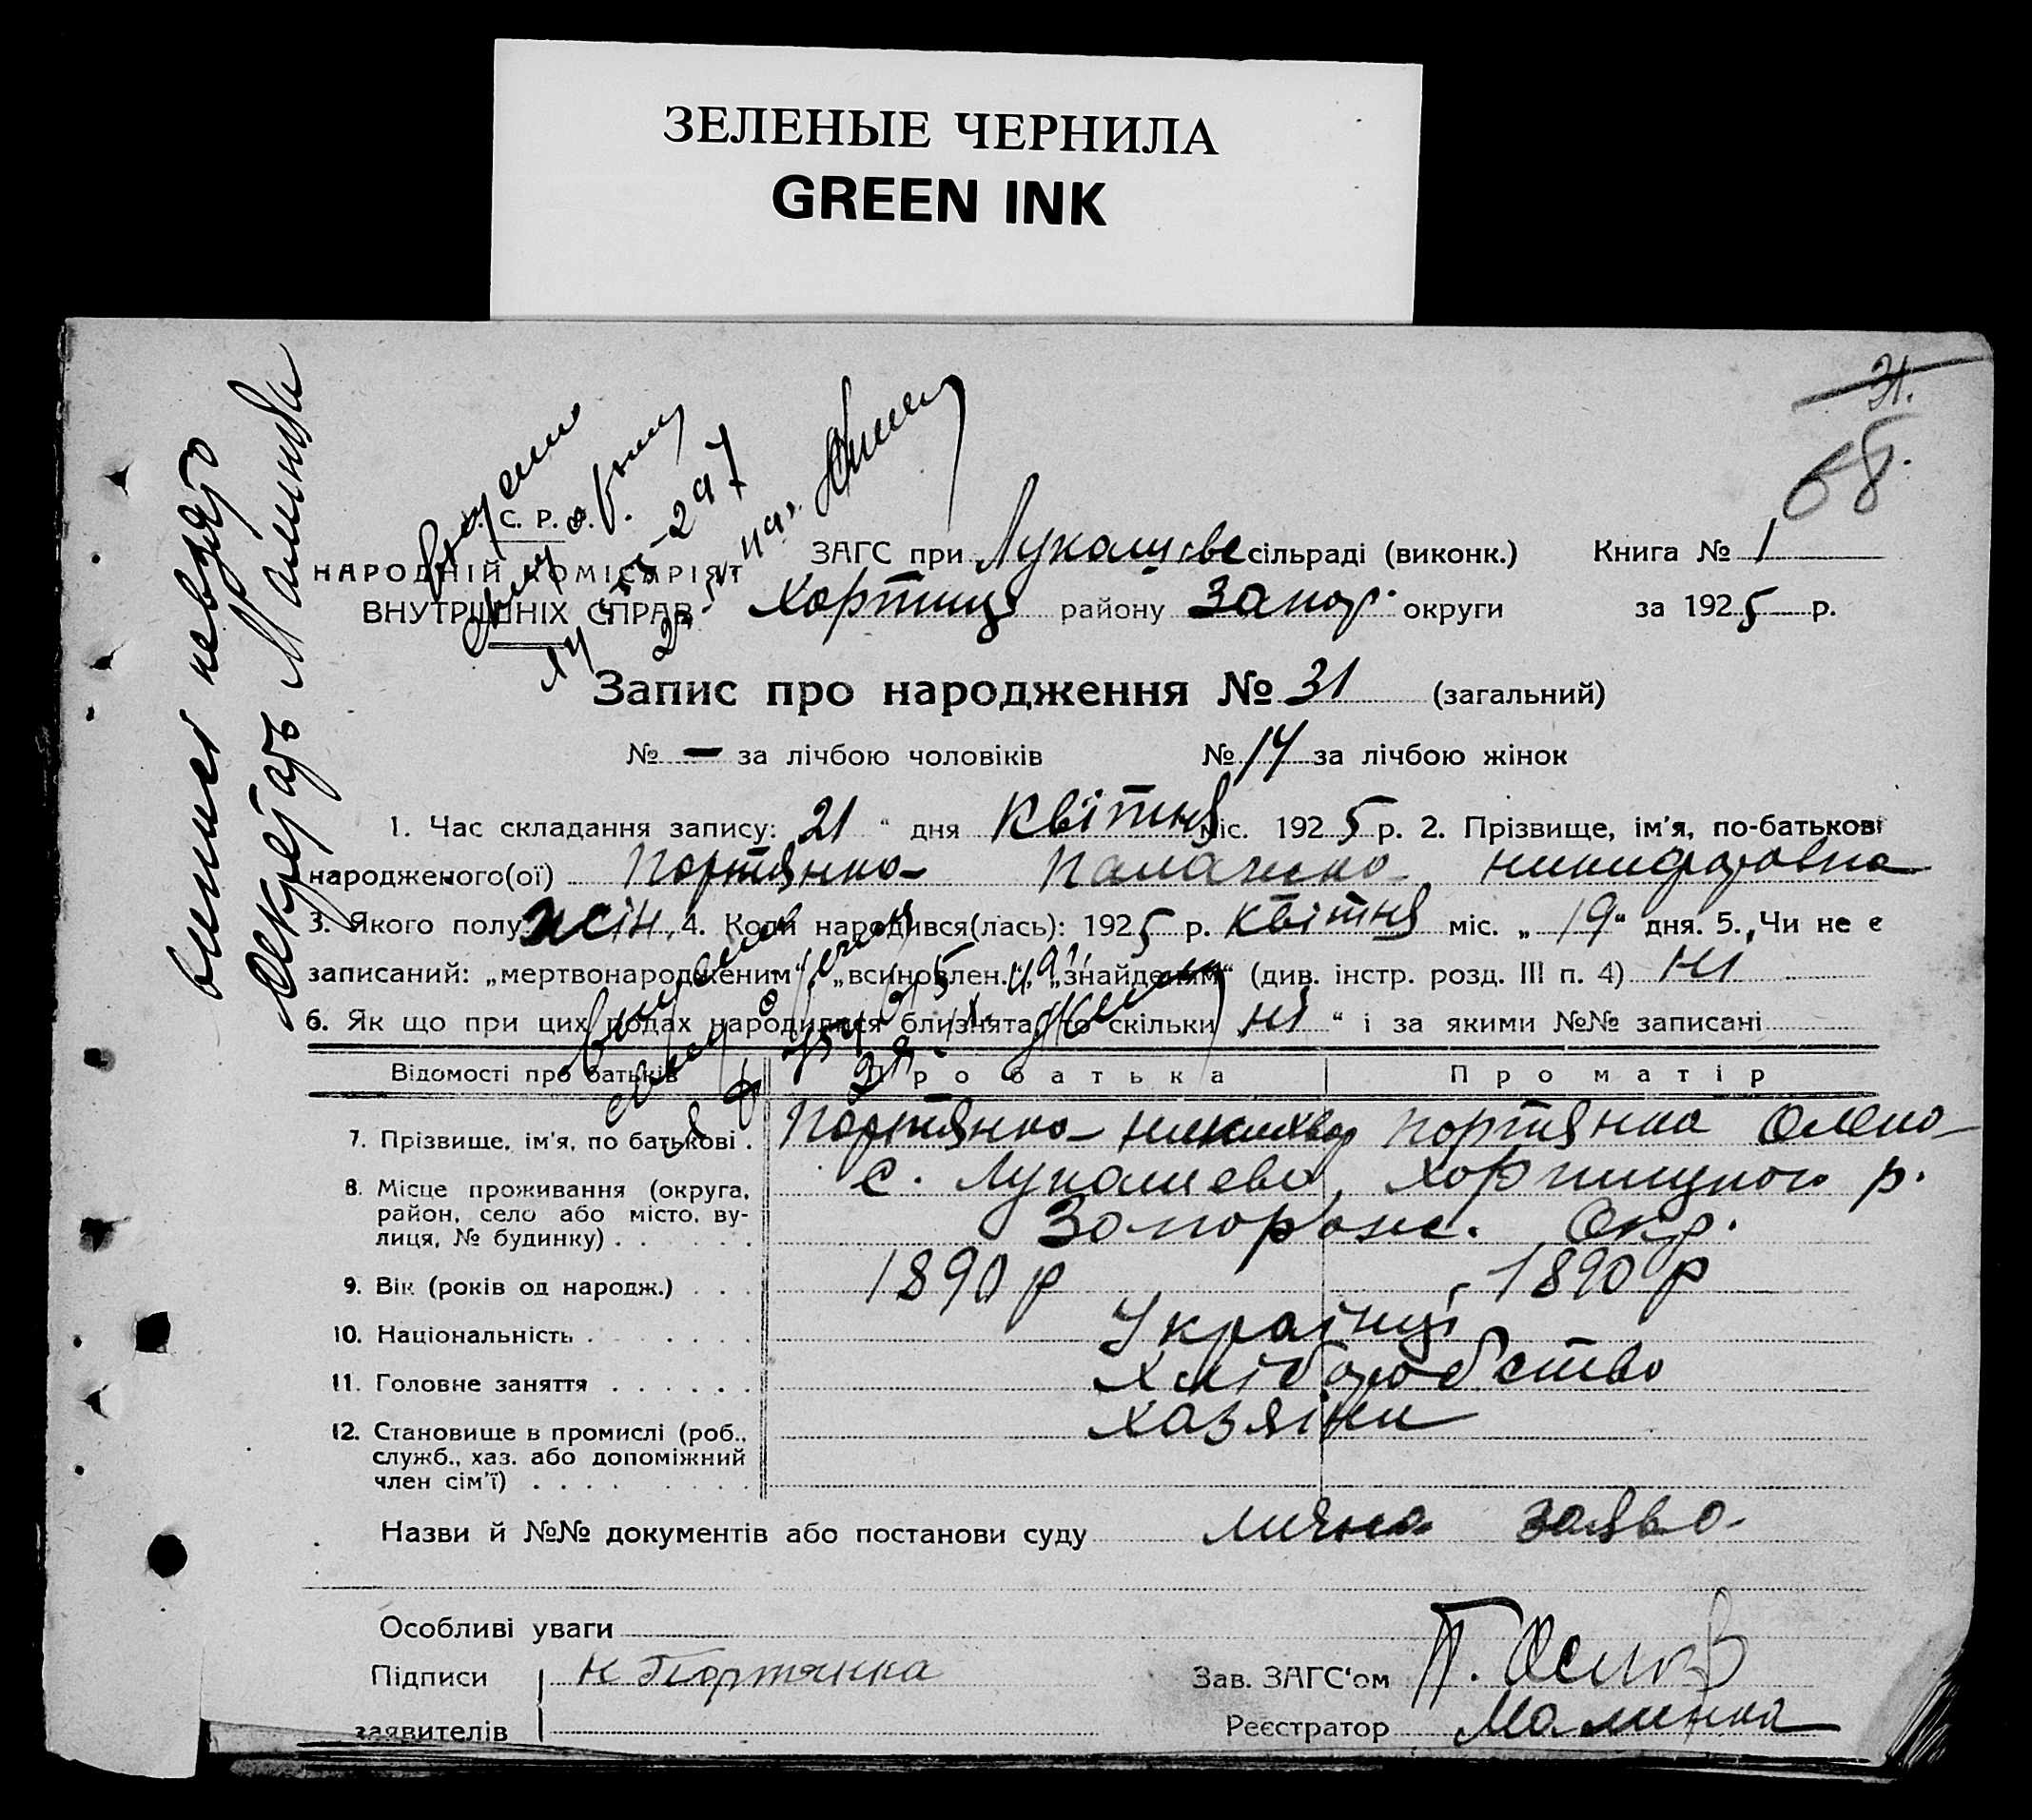 ЗЕЛЕНЫЕ ЧЕРНИЛА
GREEN INK
31.
68.
С. Р. Р.
НАРОДНІЙ КОМІСАРІЯТ
ВНУТРІШНІХ СПРАВ
ЗАГС при Лукашеве сільраді (виконк.) Книга № 1
Хортиця району Запор. округи за 1925 р.
Запис про народження № 31 (загальний)
№ — за лічбою чоловіків № 14 за лічбою жінок
1. Час складання запису: 21 " дня Квітня міс. 1925 р. 2. Прізвище, ім'я, по-батькові
народженого(ої) Портянко Палажка Никифоровна
3. Якого полу жін. 4. Коли народився(лась): 1925 р. Квітня міс. „ 19 " дня. 5. Чи не є
записаний: „мертвонародженим", „всиновлен.", „знайденим" (див. інстр. розд. III п. 4) Ні
6. Як що при цих родах народилися близнята, то скільки ні " і за якими №№ записані
Відомості про батьків Про батька Про матір
7. Прізвище, ім'я, по батькові . Портянко Никихвор Портянка Олена
8. Місце проживання (округа, район, село або місто, вулиця, № будинку) . с. Лукашево, Хортицького р.
Запорож. Окр.
9. Вік (років од народж.) . . . 1890 р 1890 р
10. Національність . Українці
11. Головне заняття . . . . . . Хліборобство
12. Становище в промислі (роб., служб., хаз. або допоміжний член сім'ї) . . . . Хазяїни
Назви й №№ документів або постанови суду лична заява
Особливі уваги
Підписи Н Портянка Зав. ЗАГС'ом П.
заявителів Реєстратор Малинка
выписи невзято
Секретарь Малинка